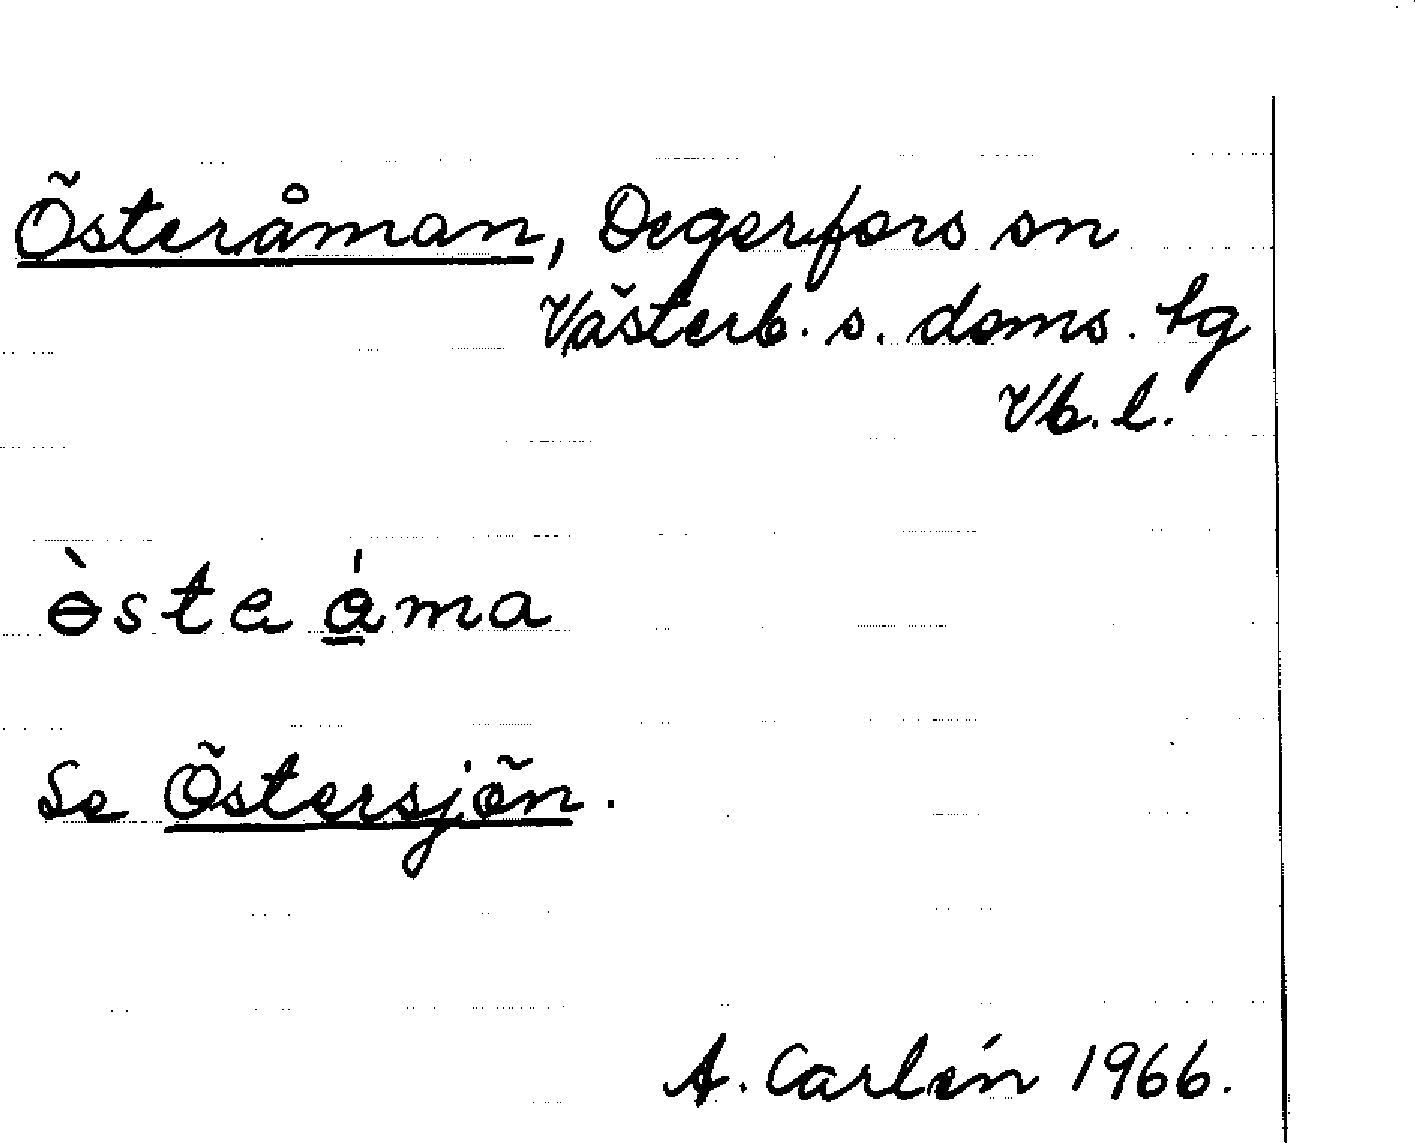 Österåman, Degerfors sn
Västerb. s. doms. tg
Vb. l.
ɵ̀sta á̱ma
Se Östersjön.
A. Carlén 1966.